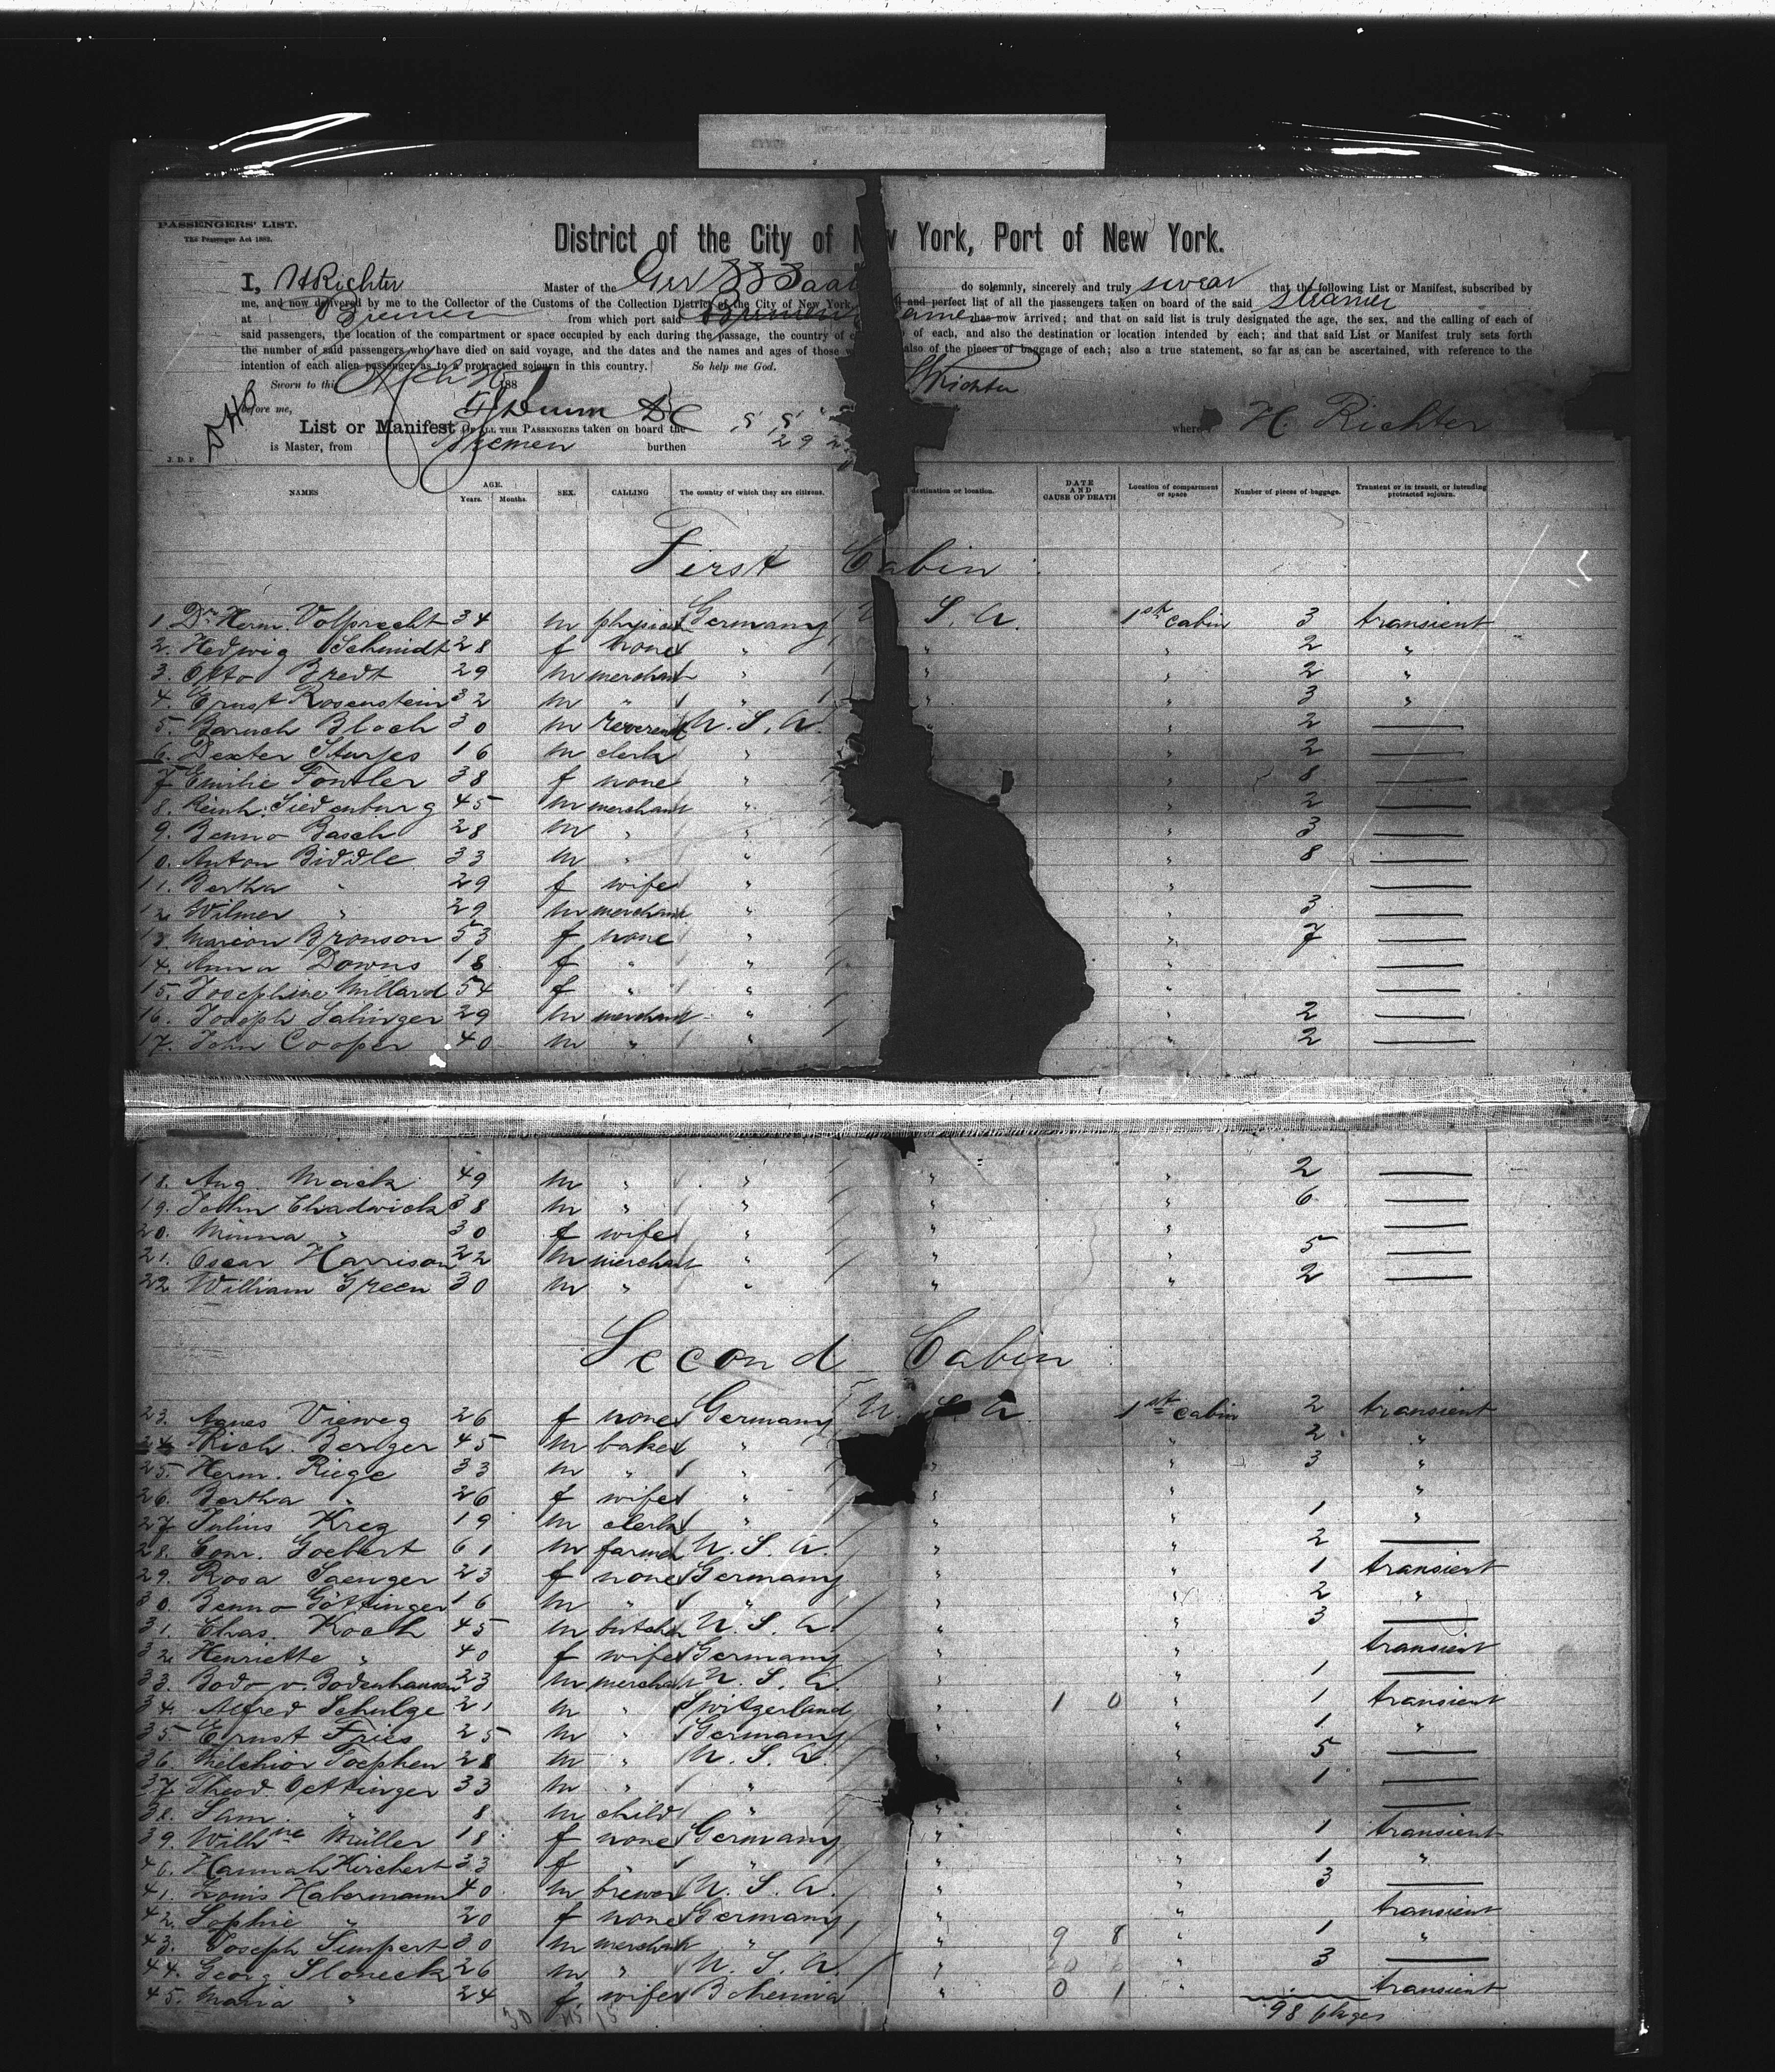 PASSENGERS' LIST.
The Passenger Act 1882.
District of the City of New York, Port of New York.
I, H Richter Master of the Ger SS Saal do solemnly, sincerely and truly swear that the following List or Manifest, subscribed by
me, and now delivered by me to the Collector of the Customs of the Collection District of the City of New York, and perfect list of all the passengers taken on board of the said steamer
at Bremen from which port said Bremen has now arrived; and that on said list is truly designated the age, the sex, and the calling of each of
said passengers, the location of the compartment or space occupied by each during the passage, the country of of each, and also the destination or location intended by each; and that said List or Manifest truly sets forth
the number of said passengers who have died on said voyage, and the dates and the names and ages of those also of the pieces of baggage of each; also a true statement, so far as can be ascertained, with reference to the
intention of each alien passenger as to a protracted sojourn in this country. So help me God.
Sworn to this 188 H Richter
before me,
List or Manifest OF ALL THE PASSENGERS taken on board the S.S. where H. Richter
is Master, from Bremen burthen 292
J. D. P.
NAMES AGE. Years. Months. SEX. CALLING The country of which they are citizens. destination or location. DATE AND CAUSE OF DEATH Location of compartment or space Number of pieces of baggage. Transient or in transit, or intending protracted sojourn.
First Cabin
1. Dr. Herm. Volprecht 34 m physician Germany U. S. A. 1st cabin 3 transient
2. Hedwig Schmidt 28 f none " " " 2 "
3. Otto Bredt 29 m merchant " " " 2 "
4. Ernst Rosenstein 32 m " " " " 3 "
5. Baruch Bloch 30 m reverend U. S. A. " " 2 —
6. Dexter Sturges 16 m clerk " " 2 —
7. Emilie Fowler 38 f none " " 8 —
8. Reinh. Siedenburg 45 m merchant " " 2 —
9. Benno Basch 28 m " " " 3 —
10. Anton Biddle 33 m " " " 8 —
11. Bertha " 29 f wife " " —
12. Wilmer " 29 m merchant " " 3 —
13. Marion Bronson 53 f none " " 7 —
14. Anna Downs 18 f " " " —
15. Josephine Millard 54 f " " " —
16. Joseph Salinger 29 m merchant " " 2 —
17. John Cooper 40 m " " " 2 —
18. Aug. Mack 49 m " " " " 2 —
19. John Chadwick 38 m " " " " 6 —
20. Minna " 30 f wife " " " —
21. Oscar Harrison 22 m merchant " " " 5 —
22. William Green 30 m " " " " 2 —
Second Cabin
23. Agnes Vieweg 26 f none Germany U. S. A. 1st cabin 2 transient
24. Rich. Berger 45 m baker " " 2 "
25. Herm. Riege 33 m " " " " 3 "
26. Bertha " 26 f wife " " " "
27. Julius Kreg 19 m clerk " " " 1 "
28. Conr. Goebert 61 m farmer U. S. A. " " 2 —
29. Rosa Saenger 23 f none Germany " " 1 transient
30. Benno Göttinger 16 m " " " " 2 "
31. Chas. Koch 45 m butcher U. S. A. " " 3 —
32. Henriette " 40 f wife Germany " " transient
33. Bodo v. Bodenhausen 23 m merchant U. S. A. " " 1 —
34. Alfred Schulze 21 m " Switzerland " 1 0 " 1 transient
35. Ernst Fries 25 m " Germany " 1 "
36. Melchior Toephen 28 m " U. S. A. " " 5 —
37. Theod. Oettinger 33 m " " " 1 —
38. Sam. " 8 m child " " " —
39. Wilhne Müller 18 f none Germany " " 1 transient
40. Hannah Kirchert 33 f " " " " 1 "
41. Louis Habermann 40 m brewer U. S. A. " " 3 —
42. Sophie " 20 f none Germany " " transient
43. Joseph Simpert 30 m merchant " " 9 8 " 1 "
44. Georg Sloneck 26 m " U. S. A. " " 3 —
45. Maria " 24 f wife Bohemia " 0 1 " transient
98 pkges